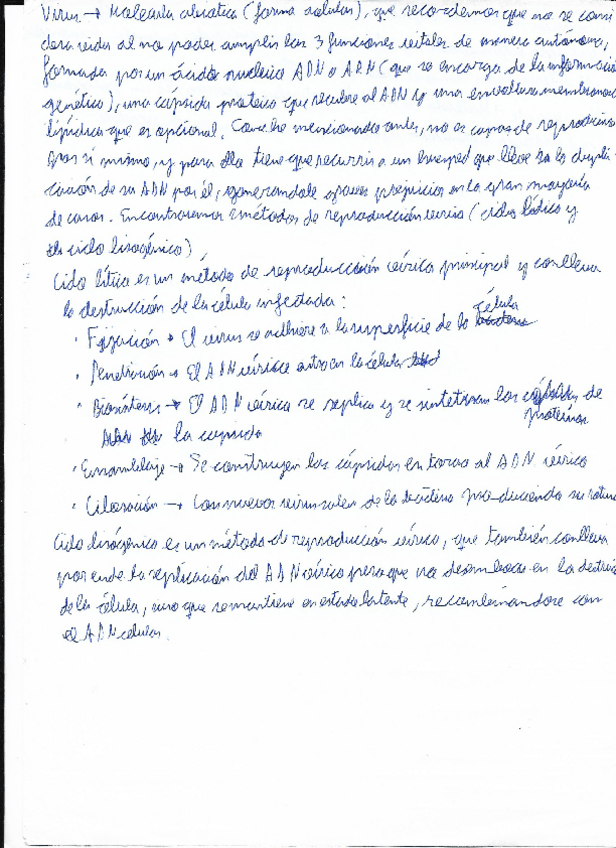 Virus → Molecula abiotica (forma acelular), que recordemos que no se consi
dera vida al no poder cumplir las 3 funciones vitales de manera autónoma,
formada por un ácido nucleico ADN o ARN (que se encarga de la información
genética), una cápsida proteica que recubre al ADN y una envoltura membranosa
lipídica que es opcional. Como he mencionado antes, no es capaz de reproducirse
por si mismo, y para ello tiene que recurrir a un huesped que lleve a la dupli
cación de su ADN por él, generandole graves prejuicios en la gran mayoría
de casos. Encontraremos 2 métodos de reproducción vírica (ciclo lítico y
ciclo lisogénico)
Ciclo lítico es un método de reproducción vírica principal y conlleva
la destrucción de la célula infectada:
· Fijación → El virus se adhiere a la superficie de la célula
· Penetración → El ADN vírico entra en la célula
· Biosíntesis → El ADN vírico se replica y se sintetizan las proteínas de
la capsida
· Ensamblaje → Se construyen las cápsidas en torno al ADN vírico
· Liberación → Los nuevos virus salen de la bacteria produciendo su rotura
Ciclo lisogénico es un método de reproducción vírica, que también conlleva
por ende la replicación del ADN vírico pero que no desemboca en la destruc
de la célula, sino que se mantiene en estado latente, recombinandose con
el ADN celular.